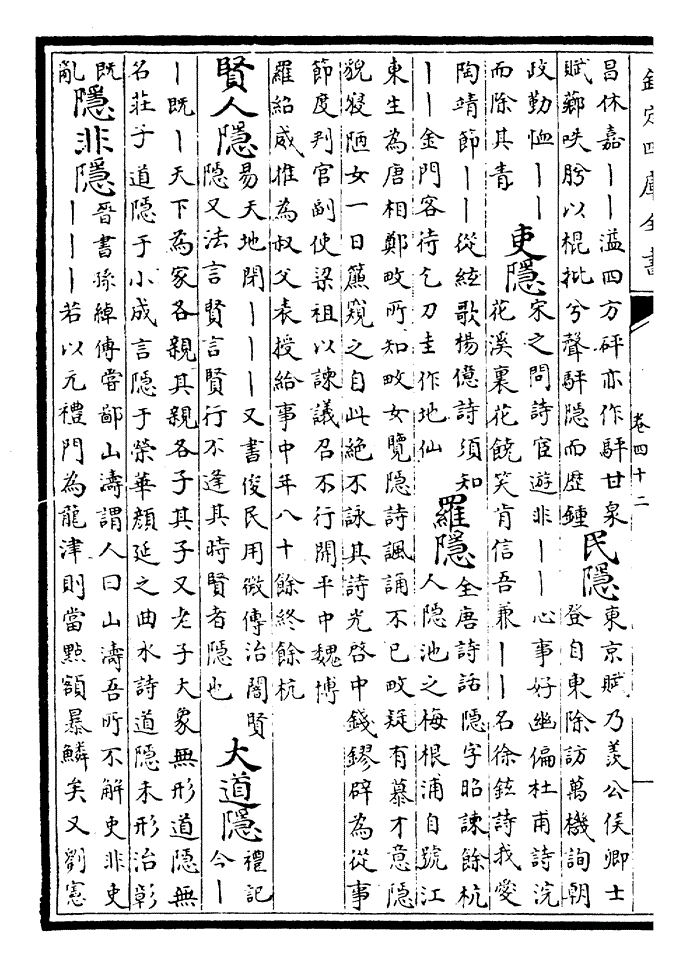 欽定四庫全書
卷四十二
昌休嘉丨丨溢四方砰亦作駍甘泉
賦薌呹肸以棍批兮聲駍隱而歷鍾
民隱
東京賦乃羡公侯卿士
登自東除訪萬機詢朝
政勤恤丨丨
而除其眚
吏隱
宋之問詩宦遊非丨丨心事好幽偏杜甫詩浣
花溪裏花饒笑肯信吾兼丨丨名徐鉉詩我愛
陶靖節丨丨從絃歌楊億詩須知
丨丨金門客待乞刀圭作地仙
羅隱
全唐詩話隱字昭諫餘杭
人隐池之梅根浦自號江
東生為唐相鄭畋所知畋女覽隱詩諷誦不已畋疑有慕才意隱
貌寢陋女一日簾窺之自此絶不詠其詩光啓中錢鏐辟為從事
節度判官副使梁祖以諫議召不行開平中魏博
羅紹威推為叔父表授給事中年八十餘終餘杭
賢人隱
易天地閉丨丨丨又書俊民用微傳治闇賢
隱又法言賢言賢行不逢其時賢者隱也
大道隱
禮記
今丨
丨既丨天下為家各親其親各子其子又老子大象無形道隱無
名莊子道隱于小成言隱于榮華顔延之曲水詩道隱未形治彰
既
亂
隱非隱
晉書孫綽傳嘗鄙山濤謂人曰山濤吾所不解吏非吏
丨丨丨若以元禮門為龍津則當㸃額暴鱗矣又劉憲